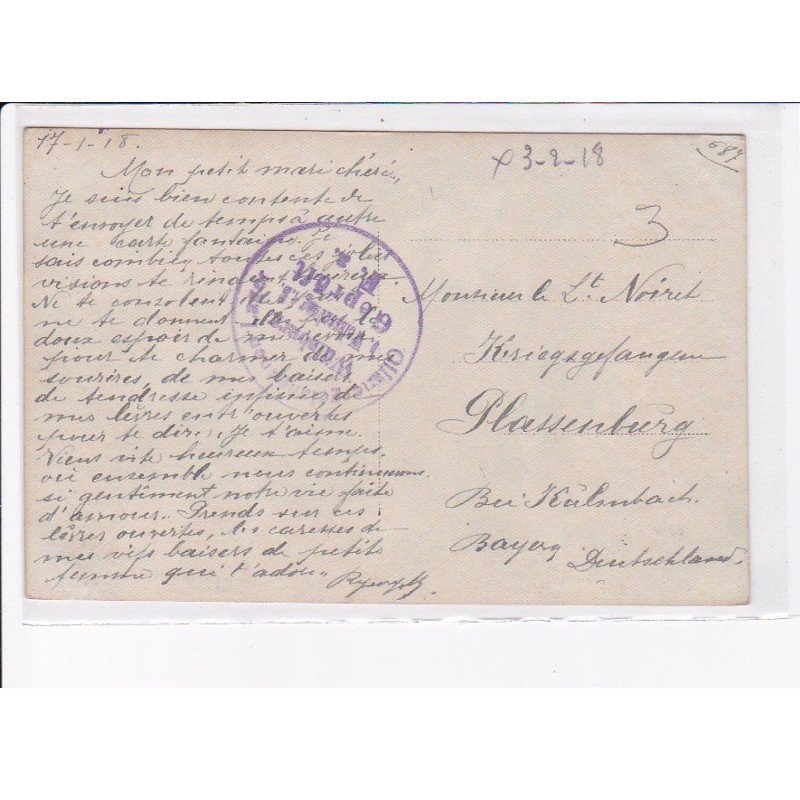 17-1-18.
Mon petit mari chéri,
Je suis bien contente de
t'envoyer de temps à autre
une carte fantaisie, je
sais combien toutes ces jolies
visions te rendent heureux.
Ne te consolent elles pas,
ne te donnent elles pas le
doux espoir de me revoir
pour te charmer de mes
sourires, de mes baisers
de tendresse infinie de
mes lèvres entr'ouvertes
pour te dire, Je t'aime
Vienne vite heureux temps,
où ensemble nous continuerons
si gentiment notre vie faite
d'amour. Prends sur ces
lèvres ouvertes, les caresses de
mes vifs baisers de petite
femme qui t'adore
x 3-2-18
687
3
Monsieur le Lt. Noiret
Kriegsgefangen
Plassenburg
Bei Külmbach.
Bayern
Deutschland.